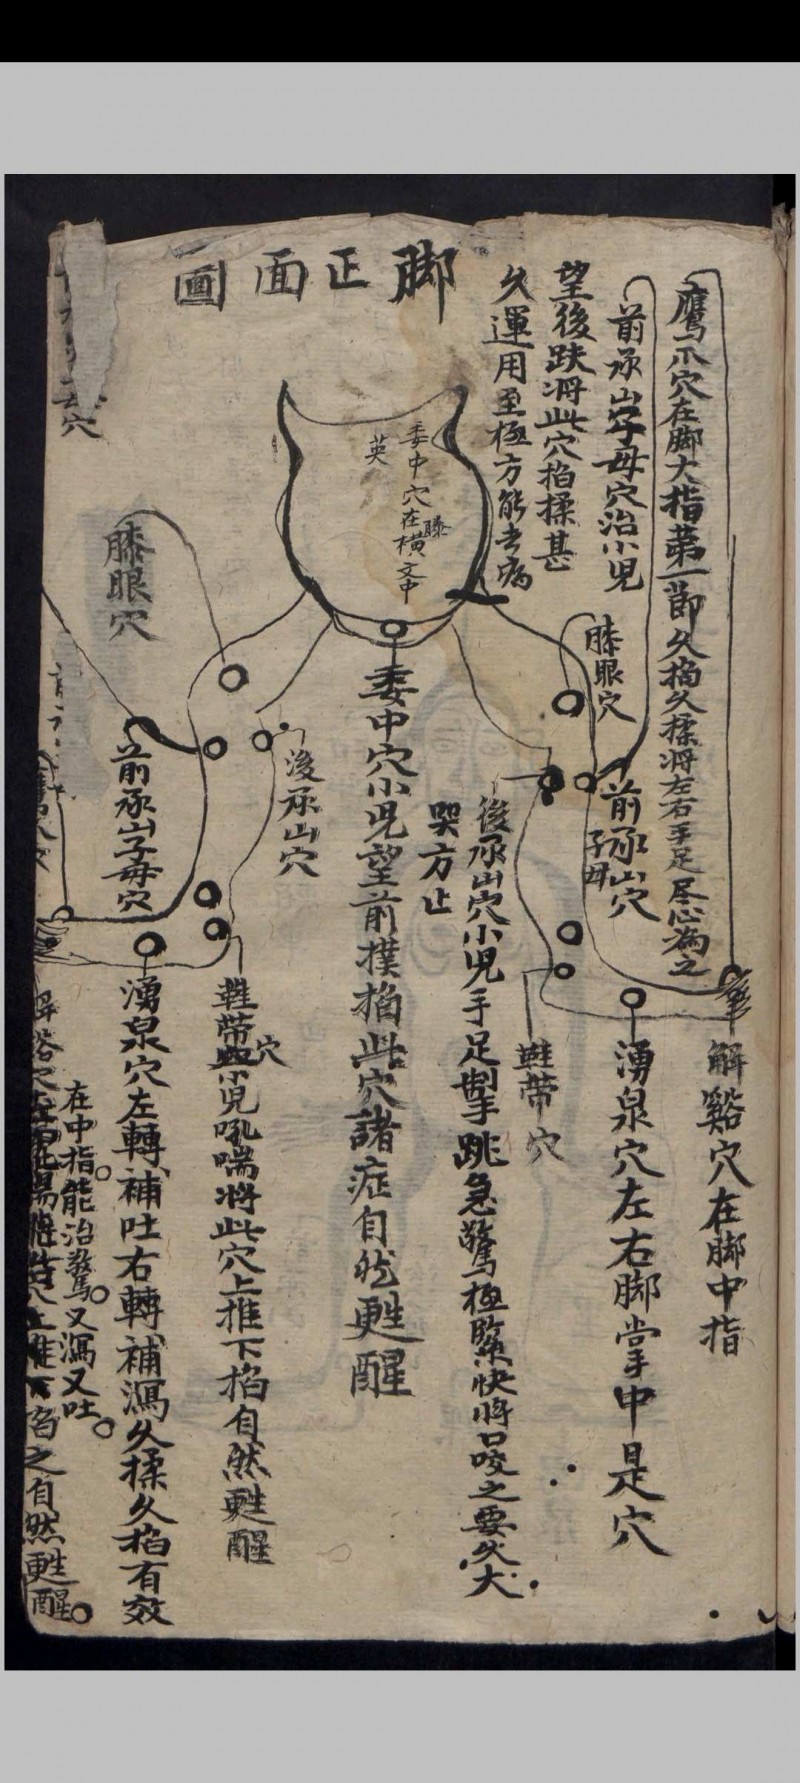 鷹爪穴在脚大指第一節久掐久揉將左右手足尽心為之
前承山字母穴治小児
望後趺将此穴掐揉甚
久運用至極方能去病
脚正面圖
委中穴在橫文中
膝
英
膝眼穴
前承山穴
子母
解谿穴在脚中指
湧泉穴左右脚掌中是穴
鞋帶穴
後承山穴小児手足掣跳急驚極緊快將口咬之要久大
哭方止
委中穴小児望前撲掐此穴諸症自然甦醒
後承山穴
鞋帶穴小児吼喘将此穴上推下掐自然甦醒
膝眼穴
前承山子母穴
湧泉穴左轉補吐右轉補瀉久揉久掐有效
在中指能治驚又瀉又吐
穴
之自然甦醒